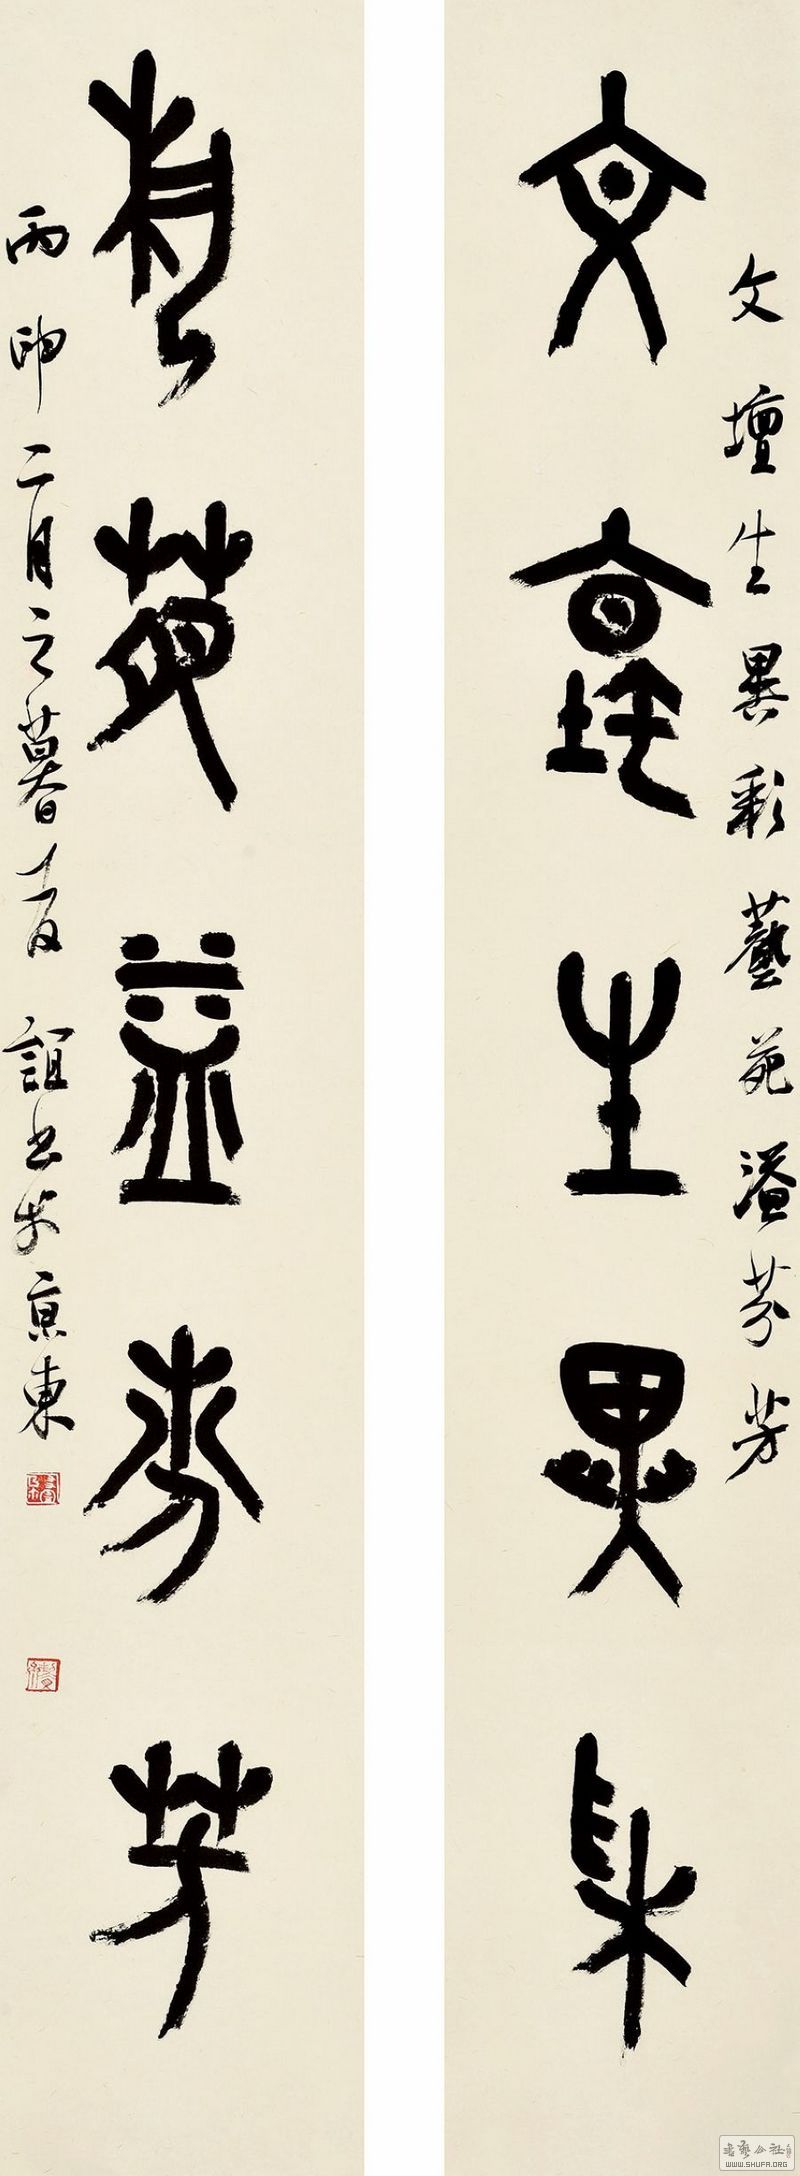 文壇生異彩
文壇生異彩藝苑溢芬芳
藝苑溢芬芳
丙申二月之暮春 誼書於京東
書藝公社
WWW.SHUFA.ORG